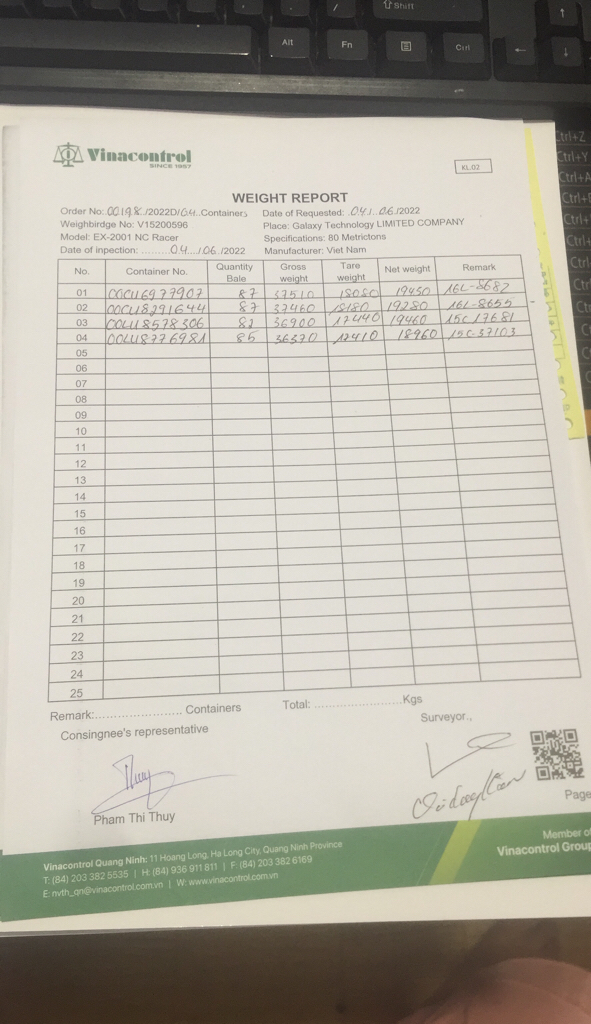 Shift
Alt
Fn
Ctrl
Ctrl+Z
Ctrl+Y
Ctrl+A
Vinacontrol
SINCE 1957
KL.02
WEIGHT REPORT
Order No: 00198/2022D/04 Containers Date of Requested: 04/06/2022
Weighbirdge No: V15200596 Place: Galaxy Technology LIMITED COMPANY
Model: EX-2001 NC Racer Specifications: 80 Metrictons
Date of inpection: ........04.../06./2022 Manufacturer: Viet Nam
No. Container No. Quantity Bale Gross weight Tare weight Net weight Remark
01 OOCU6977907 87 37510 18080 19430 16L-8682
02 OOCU8291644 87 37460 18180 19280 16L-8655
03 OOLU8578306 82 36900 17440 19460 15C17681
04 OOLU8776981 85 36370 17410 18960 15C-37103
05
06
07
08
09
10
11
12
13
14
15
16
17
18
19
20
21
22
23
24
25
Remark:........................ Containers Total: ........................Kgs
Consingnee's representative Surveyor.,
Thuy
Pham Thi Thuy
Page
Vinacontrol Quang Ninh: 11 Hoang Long, Ha Long City, Quang Ninh Province
T: (84) 203 382 5535 | H: (84) 936 911 811 | F: (84) 203 382 6169
E: nvth_qn@vinacontrol.com.vn | W: www.vinacontrol.com.vn
Member of
Vinacontrol Group